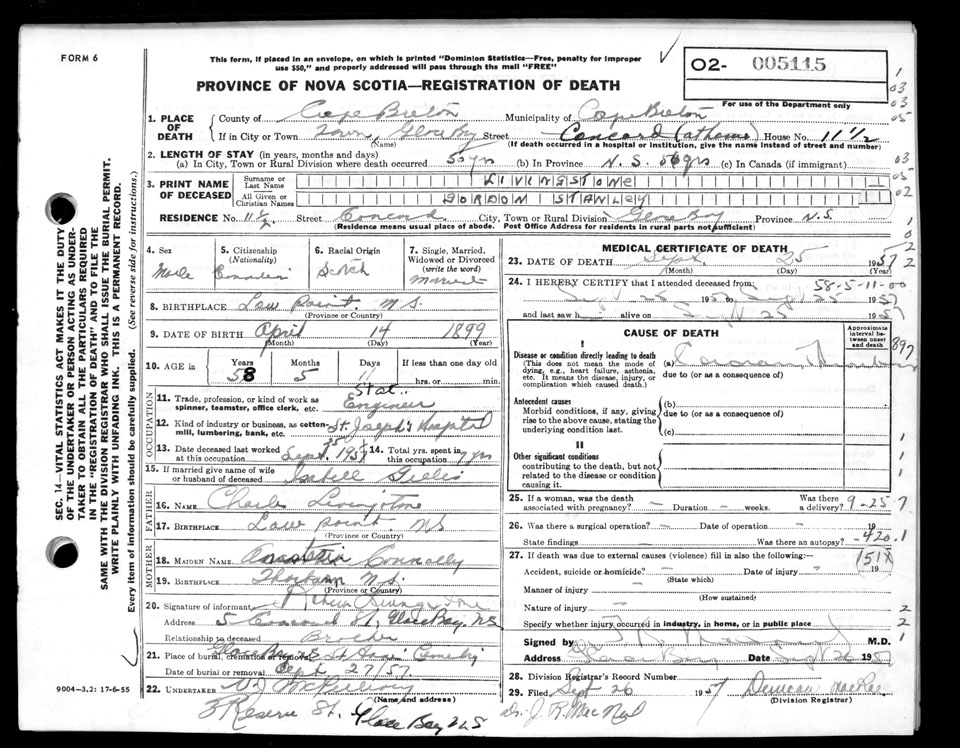 FORM 6
This form, if placed in an envelope, on which is printed "Dominion Statistics—Free, penalty for improper
use $50," and properly addressed will pass through the mail "FREE"
O2- 005115
For use of the Department only
PROVINCE OF NOVA SCOTIA—REGISTRATION OF DEATH
1. PLACE OF DEATH
County of Cape Breton Municipality of Cape Breton
If in City or Town Town, Glace Bay Street Concord (at home) House No. 11 1/2
(Name) (If death occurred in a hospital or institution, give the name instead of street and number)
2. LENGTH OF STAY (in years, months and days)
(a) In City, Town or Rural Division where death occurred (b) In Province N.S. (c) In Canada (if immigrant)
3. PRINT NAME OF DECEASED
Surname or Last Name LIVINGSTONE
All Given or Christian Names GORDON STANLEY
RESIDENCE No. 11 1/2 Street Concord City, Town or Rural Division Glace Bay Province N.S.
(Residence means usual place of abode. Post Office Address for residents in rural parts not sufficient)
4. Sex Male
5. Citizenship (Nationality) Canadian
6. Racial Origin Scotch
7. Single, Married, Widowed or Divorced (write the word) Married
8. BIRTHPLACE Low Point N.S.
(Province or Country)
9. DATE OF BIRTH April 14 1899
(Month) (Year)
10. AGE in Years 58 Months 5 Days 11 If less than one day old hrs. or min.
OCCUPATION
11. Trade, profession, or kind of work as spinner, teamster, office clerk, etc. Stat. Engineer
12. Kind of industry or business, as cotton-mill, lumbering, bank, etc. St. Joseph's Hospital
13. Date deceased last worked at this occupation Sept. 1957
14. Total yrs. spent in this occupation
15. If married give name of wife or husband of deceased Isabell Gillis
FATHER
16. NAME Charles Livingstone
17. BIRTHPLACE Low point NS
(Province or Country)
MOTHER
18. MAIDEN NAME Connolly
19. BIRTHPLACE Thorburn N.S.
(Province or Country)
20. Signature of informant
Address 5 Concord St., Glace Bay, NS
Relationship to deceased Brother
21. Place of burial, cremation or removal Glace Bay NS St Anns Cemetery
Date of burial or removal Sept 27/57.
22. UNDERTAKER
(Name and address)
3 Reserve St. Glace Bay NS
MEDICAL CERTIFICATE OF DEATH
23. DATE OF DEATH Sept 25 1957
(Month) (Day) (Year)
24. I HEREBY CERTIFY that I attended deceased from: 58-5-11-00
Sept 25 1957 Sept 25 1957
and last saw h alive on Sept 25 1957
CAUSE OF DEATH
Approximate interval between onset and death
I
Disease or condition directly leading to death
(This does not mean the mode of dying, e.g., heart failure, asthenia, etc. It means the disease, injury, or complication which caused death.)
(a) Coronary Thrombosis
due to (or as a consequence of)
Antecedent causes
Morbid conditions, if any, giving rise to the above cause, stating the underlying condition last.
(b)
due to (or as a consequence of)
(c)
II
Other significant conditions
contributing to the death, but not related to the disease or condition causing it.
25. If a woman, was the death associated with pregnancy? Duration weeks. Was there a delivery? 9-25-7
26. Was there a surgical operation? Date of operation 19
State findings Was there an autopsy? 420.1
27. If death was due to external causes (violence) fill in also the following:—
Accident, suicide or homicide? Date of injury 19
(State which)
Manner of injury
(How sustained)
Nature of injury
Specify whether injury occurred in industry, in home, or in public place
Signed by M.D.
Address Glace Bay Date Sept 26 1957
28. Division Registrar's Record Number
29. Filed Sept 26 1957 Duncan MacRae
(Division Registrar)
Dr. J. R. MacNeil
SEC. 14—VITAL STATISTICS ACT MAKES IT THE DUTY
OF THE UNDERTAKER OR PERSON ACTING AS UNDER-
TAKER TO OBTAIN ALL THE PARTICULARS REQUIRED
IN THE "REGISTRATION OF DEATH" AND TO FILE THE
SAME WITH THE DIVISION REGISTRAR WHO SHALL ISSUE THE BURIAL PERMIT.
WRITE PLAINLY WITH UNFADING INK. THIS IS A PERMANENT RECORD.
Every item of information should be carefully supplied. (See reverse side for instructions.)
9004-3.2: 17-6-55